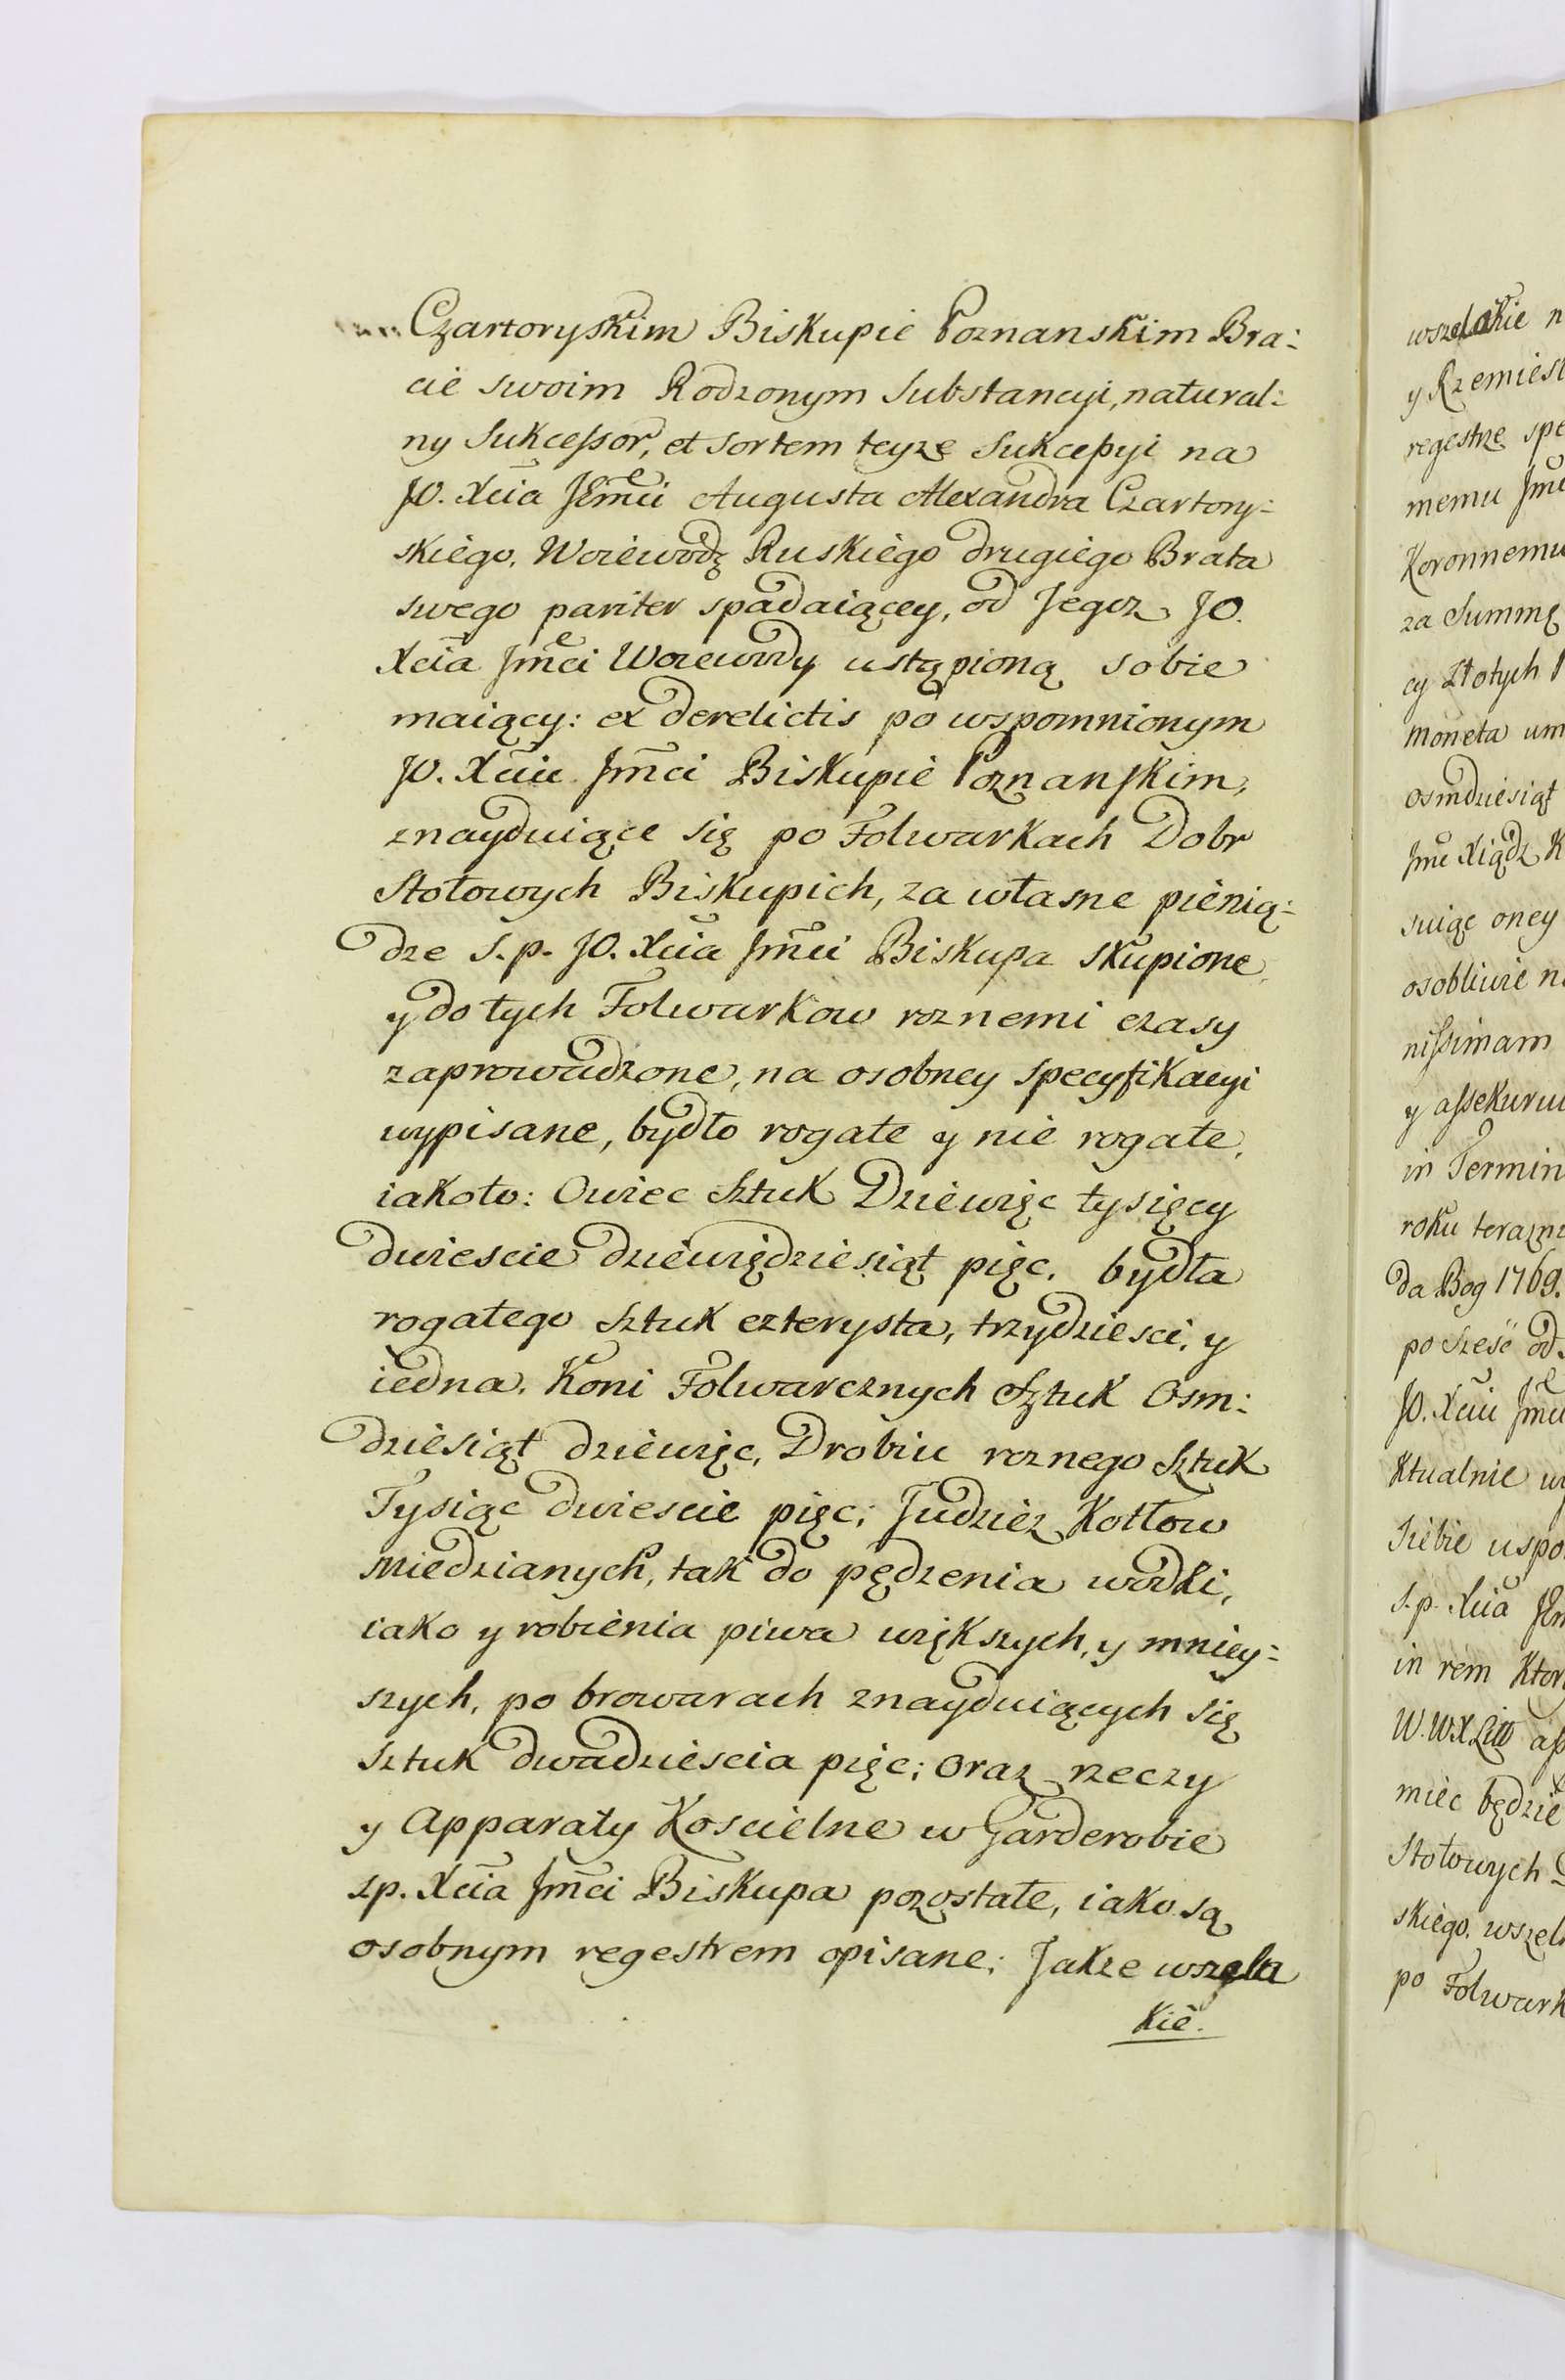 Czartoryskim Biskupie Poznanskim Bra:
cie swoim Rodzonym Substancyi, natural:
ny Sukcessor, et sortem teyze Sukcessyi na
JO. Xcia Jmci Augusta Alexandra Czartory:
skiego, Woiewodę Ruskiego drugiego Brata
swego pariter spadaiącey, od Jegoz JO.
Xcia Jmci Woiewody ustąpioną sobie
maiący: ex derelictis po wspomnionym
JO. Xciu Jmci Biskupie Poznanskim,
znayduiące się po Folwarkach Dobr
Stołowych Biskupich, za własne pienią:
dze S.p. JO. Xcia Jmci Biskupa skupione,
y do tych Folwarkow roznemi czasy
zaprowadzone, na osobney specyfikacyi
wypisane, bydło rogate y nie rogate,
iakoto: Owiec Sztuk Dziewięc tysięcy
dwiescie dziewiędziesiąt pięc. bydła
rogatego Sztuk czterysta, trzydziesci, y
iedna. Koni Folwarcznych Sztuk Osm:
dziesiąt dziewięc, Drobiu roznego Sztuk
Tysiąc dwiescie pięc; Judziez Kotłow
Miedzianych, tak do pędzenia wodki,
iako y robienia piwa większych, y mniey:
szych, po browarach znayduiących się
Sztuk dwadziescia pięc; oraz rzeczy
y Apparaty Koscielne w Garderobie
sp. Xcia Jmci Biskupa pozostałe, iako są
osobnym regestrem opisane; Jakze wszela
kie.
wszelakie n
y Rzemiesl
regestrze spe
memu Jmc
Koronnemu
za Summę
cy Złotych P
moneta um
osmdziesiąt
Jmc Xiądz K
suiąc oney
osobliwie n
nissimam
y assekuru
in Termin
roku terazn
da Bog 1769.
po Sześc od
JO. Xciu Jmci
ktualnie w
Siebie uspo
S.p. Xcia Jm
in rem ktor
W.WX.Litt ass
miec będzie
Stołowych
skiego, wszel
po Folwark